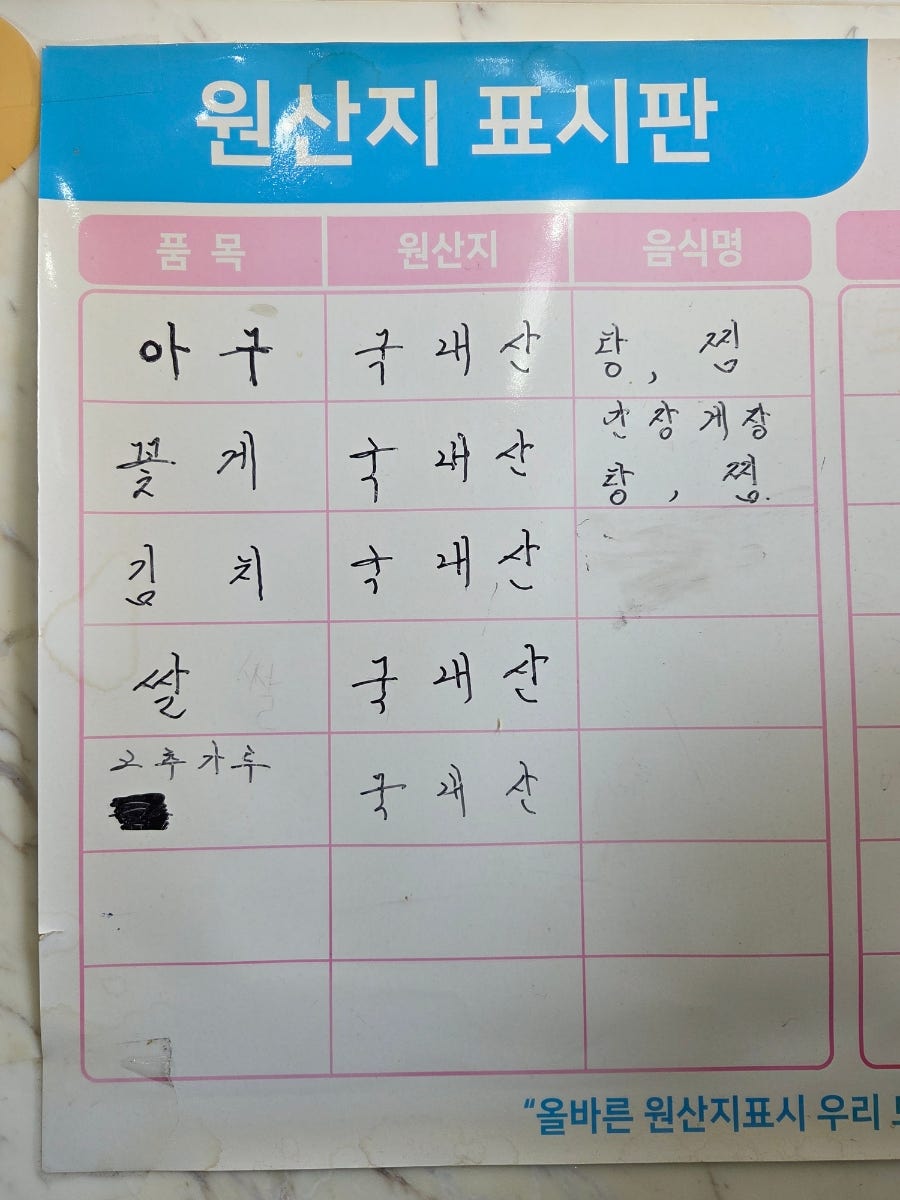 원산지 표시판
품 목 원산지 음식명
아 구 국 내 산 탕, 찜
꽃 게 국 내 산 간 장 게 장
탕, 찜
김 치 국 내 산
쌀 국 내 산
고 추 가 루 국 내 산
"올바른 원산지표시 우리